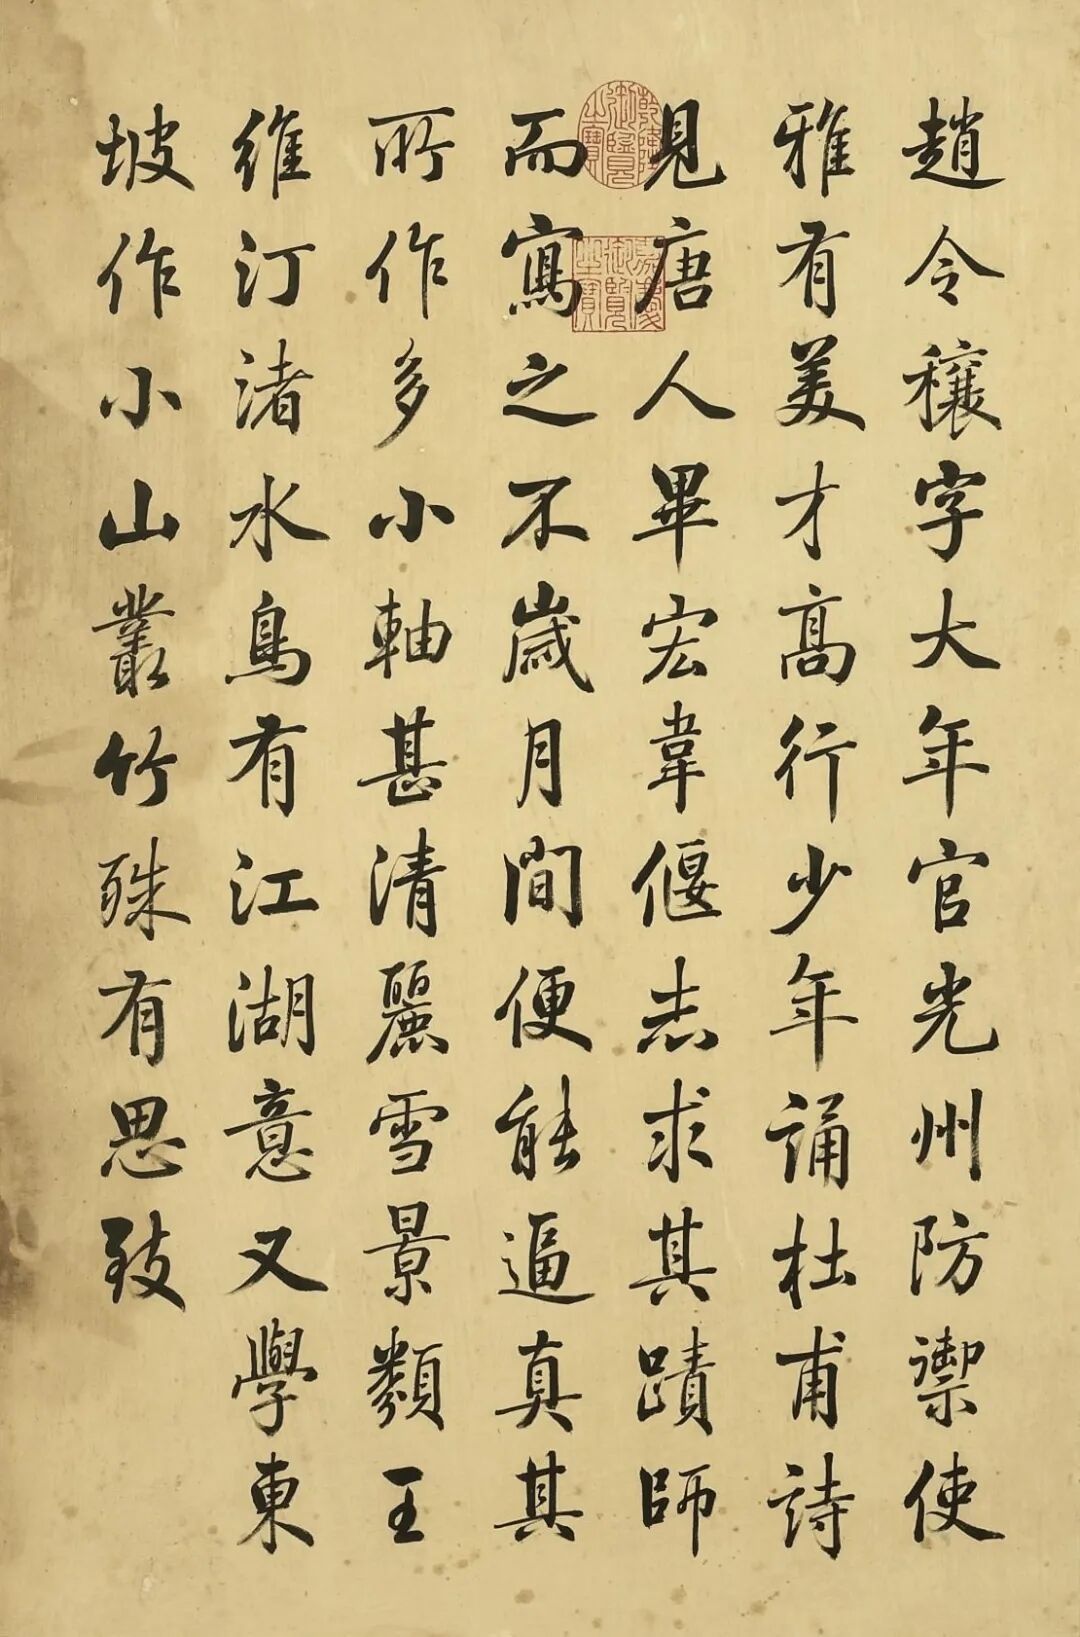 趙令穰字大年官光州防禦使
雅有美才高行少年誦杜甫詩
見唐人畢宏韋偃志求其蹟師
而寫之不歲月間便能逼真其
所作多小軸甚清麗雪景類王
維汀渚水鳥有江湖意又學東
坡作小山叢竹殊有思致
乾隆御覽之寶
嘉慶御覽之寶